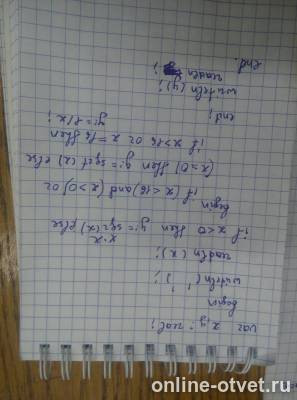 var x,y: real;
begin
writeln (' ');
readln (x);
x·x
if x<0 then y:= sqr(x) else
begin
if (x<16) and (x>0) or
(x=0) then y:= sqrt (x) else
if x>16 or x=16 then
y:= 8/x;
end;
writeln (y);
readln ;
end.
online-otvet.ru